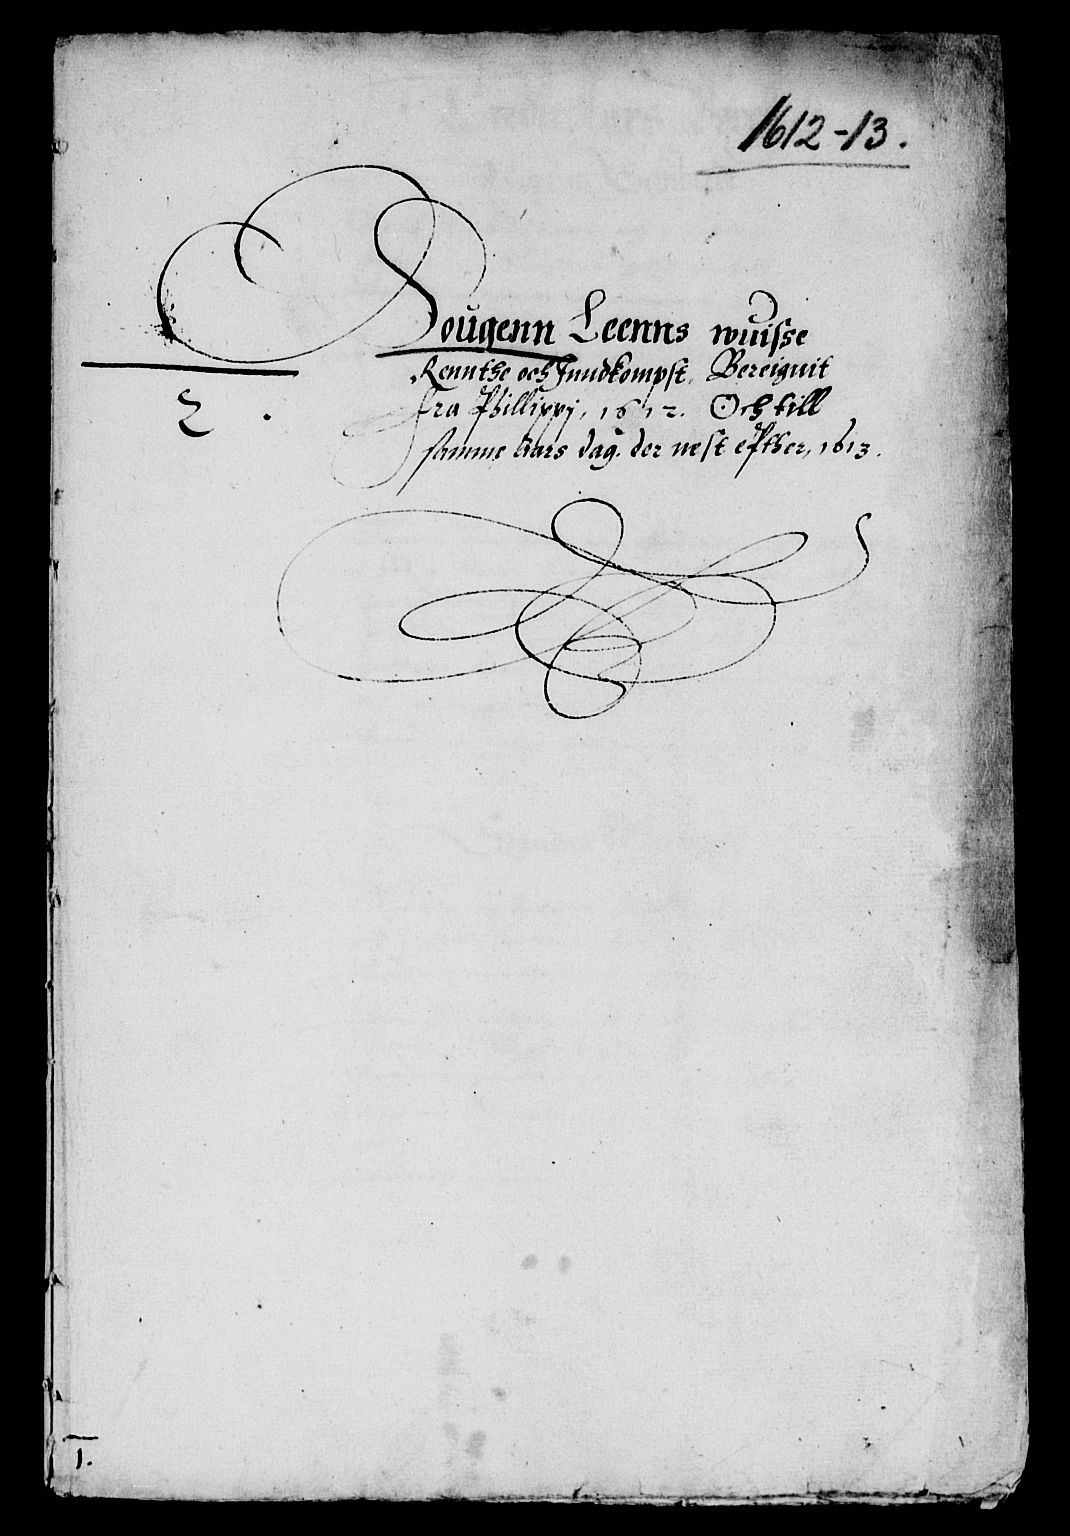 1612-13.
Dougenn Leenns wuisse
Rennthe och Inndkompst, Bereignit
fra Phillippj, 1612. Och till
samme Aars dag. der nest efther, 1613.
2.
1.